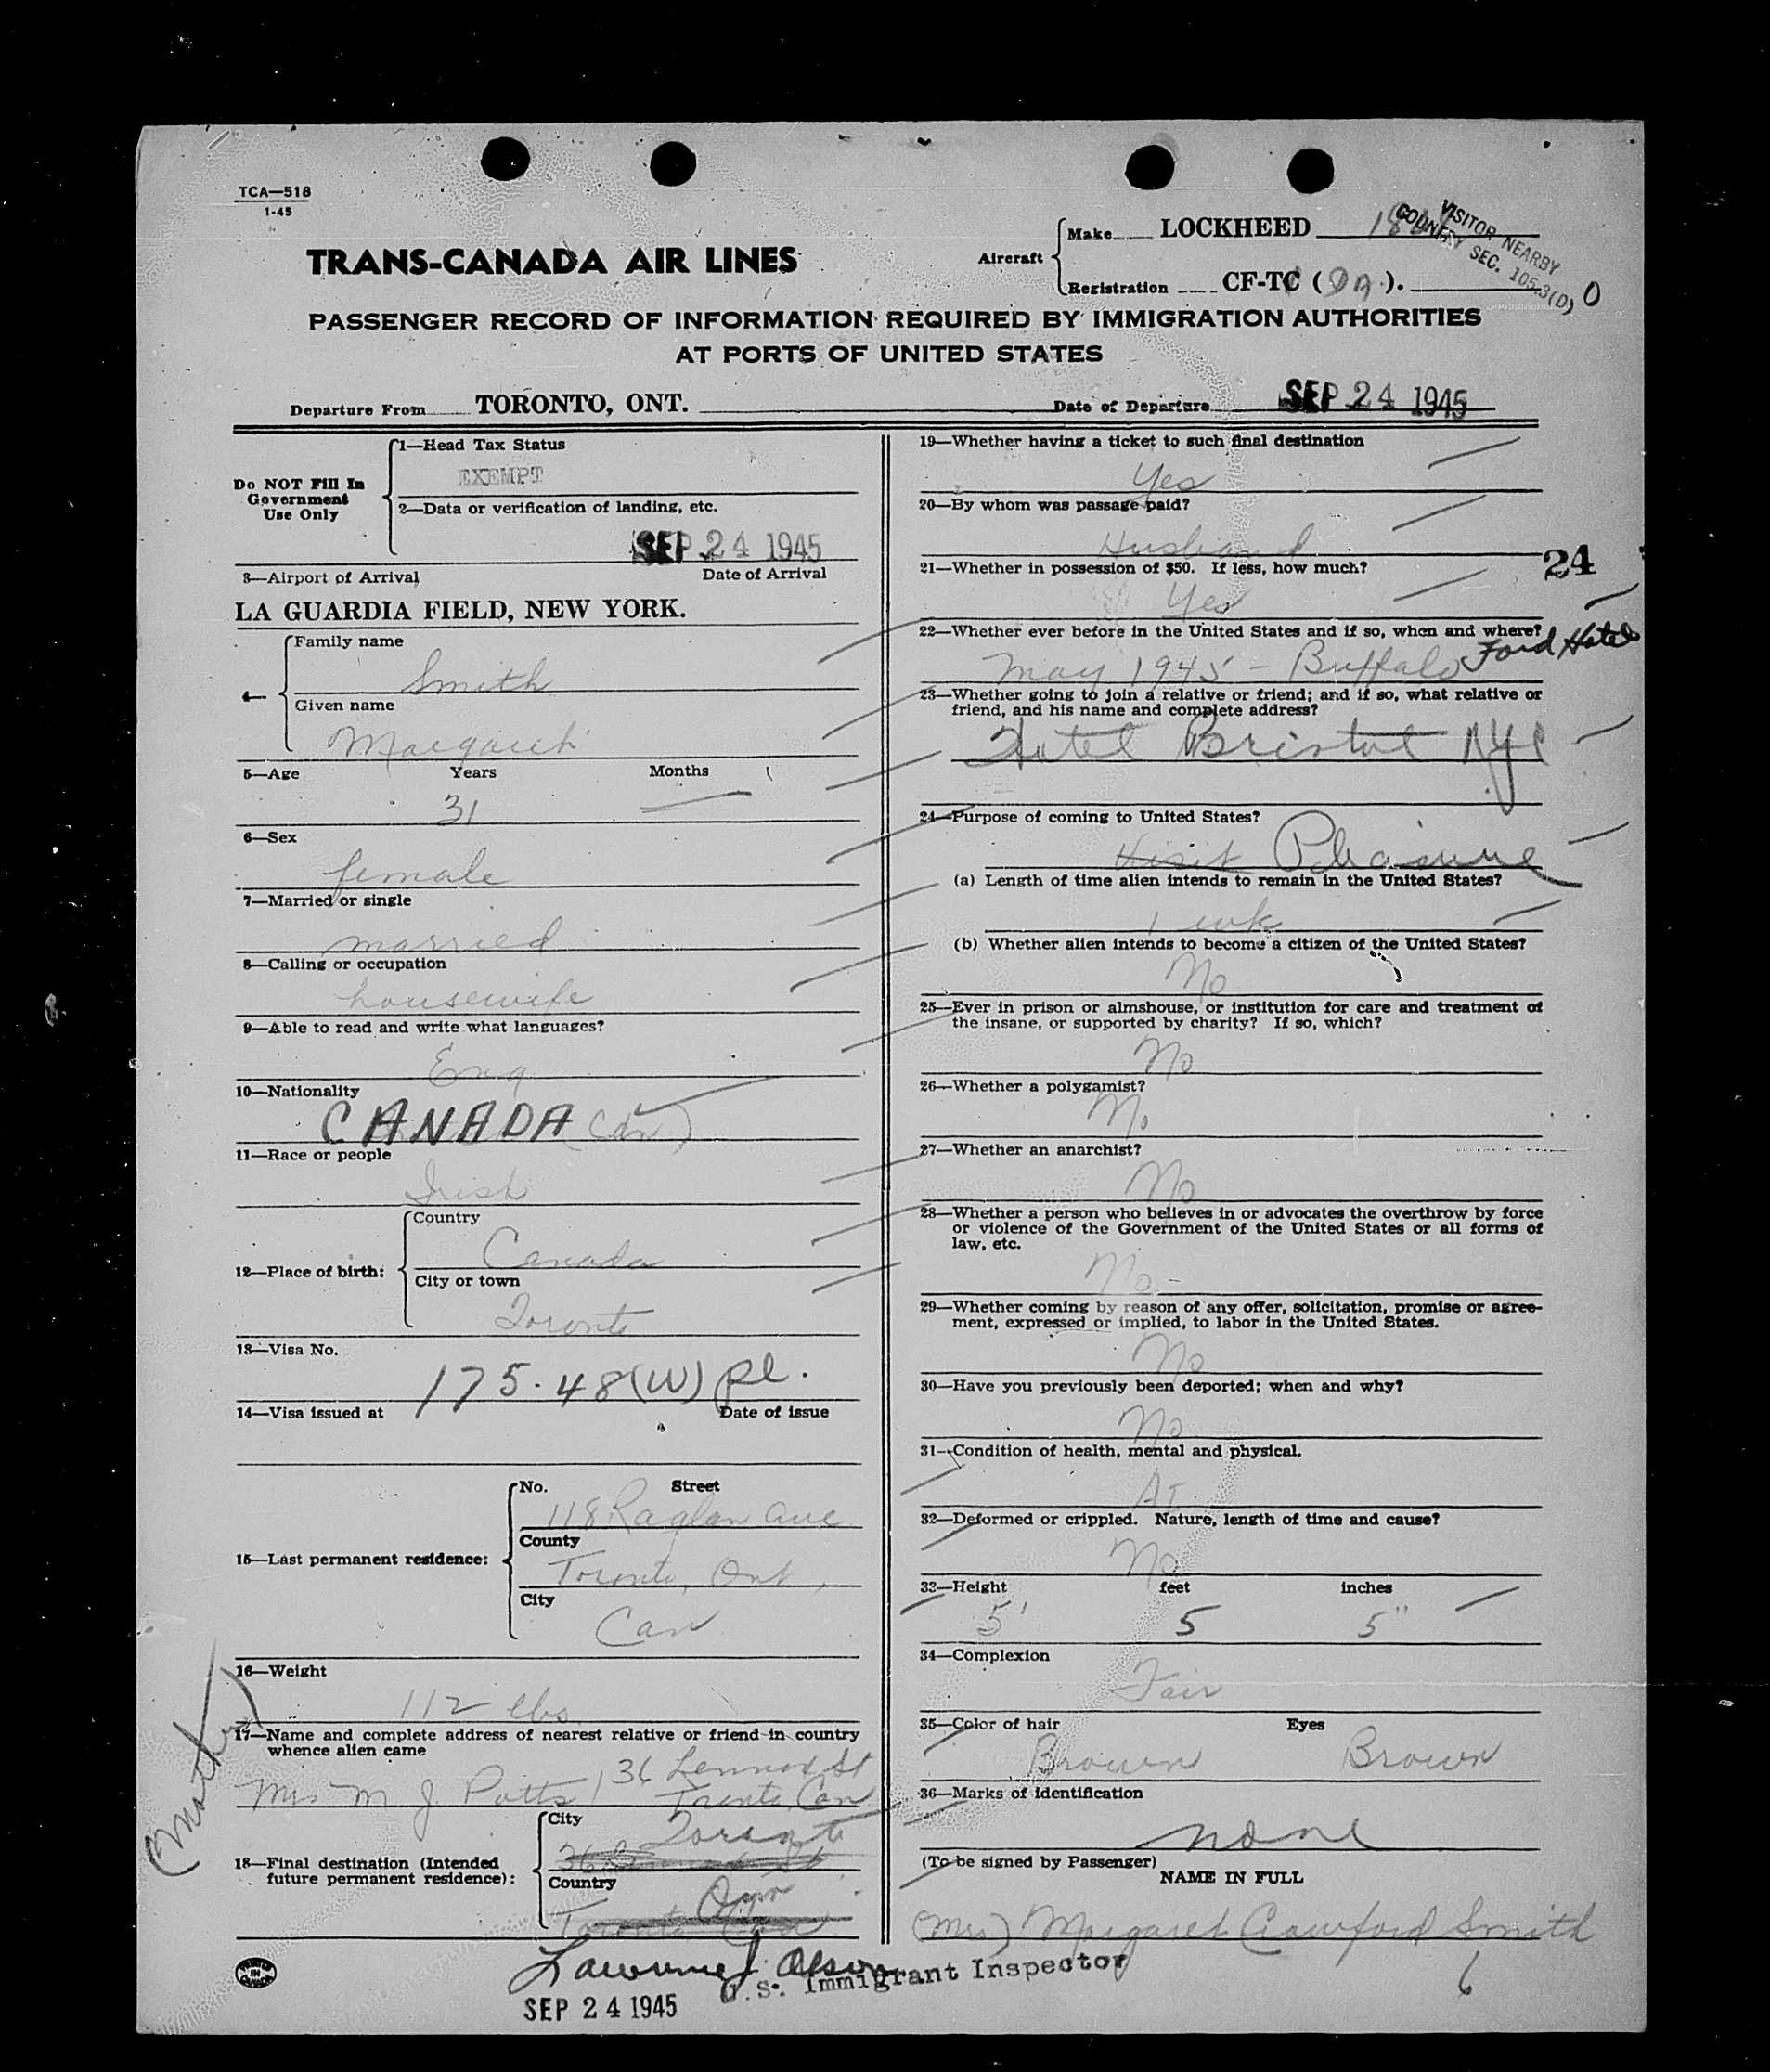 TCA—518
1-45
TRANS-CANADA AIR LINES
Aircraft
Make LOCKHEED
Registration CF-TC ( ).
VISITOR NEARBY
COUNTRY SEC. 105.3(D)
0
PASSENGER RECORD OF INFORMATION REQUIRED BY IMMIGRATION AUTHORITIES
AT PORTS OF UNITED STATES
Departure From TORONTO, ONT.
Date of Departure SEP 24 1945
Do NOT Fill In
Government
Use Only
1—Head Tax Status
EXEMPT
2—Data or verification of landing, etc.
SEP 24 1945
3—Airport of Arrival Date of Arrival
LA GUARDIA FIELD, NEW YORK.
4—
Family name
Smith
Given name
Margaret
5—Age Years Months
31 —
6—Sex
female
7—Married or single
married
8—Calling or occupation
housewife
9—Able to read and write what languages?
Eng
10—Nationality
CANADA (Can)
11—Race or people
Irish
12—Place of birth:
Country
Canada
City or town
Toronto
13—Visa No.
175.48(W) Pl.
14—Visa issued at Date of issue
15—Last permanent residence:
No. Street
118 Raglan Ave
County
Toronto, Ont,
City
Can
16—Weight
112 lbs
17—Name and complete address of nearest relative or friend in country
whence alien came
(Mother)
36 Lennox St
Mrs M J. Potts / Toronto, Can
18—Final destination (Intended
future permanent residence):
City
Toronto
36 Lennox St
Country
Ont
Toronto Can
19—Whether having a ticket to such final destination
Yes
20—By whom was passage paid?
Husband
21—Whether in possession of $50. If less, how much?
24
Yes
22—Whether ever before in the United States and if so, when and where?
May 1945 – Buffalo Ford Hotel
23—Whether going to join a relative or friend; and if so, what relative or
friend, and his name and complete address?
Hotel Bristol NYC
24—Purpose of coming to United States?
Visit Pleasure
(a) Length of time alien intends to remain in the United States?
1 wk
(b) Whether alien intends to become a citizen of the United States?
No
25—Ever in prison or almshouse, or institution for care and treatment of
the insane, or supported by charity? If so, which?
No
26—Whether a polygamist?
No
27—Whether an anarchist?
No
28—Whether a person who believes in or advocates the overthrow by force
or violence of the Government of the United States or all forms of
law, etc.
No-
29—Whether coming by reason of any offer, solicitation, promise or agree-
ment, expressed or implied, to labor in the United States.
No
30—Have you previously been deported; when and why?
No
31—Condition of health, mental and physical.
A1
32—Deformed or crippled. Nature, length of time and cause?
No
33—Height feet inches
5' 5 5"
34—Complexion
Fair
35—Color of hair Eyes
Brown Brown
36—Marks of identification
none
(To be signed by Passenger)
NAME IN FULL
(Mrs) Margaret Crawford Smith
6
PRINTED IN CANADA
Lawrence J. Olson
U.S. Immigrant Inspector
SEP 24 1945